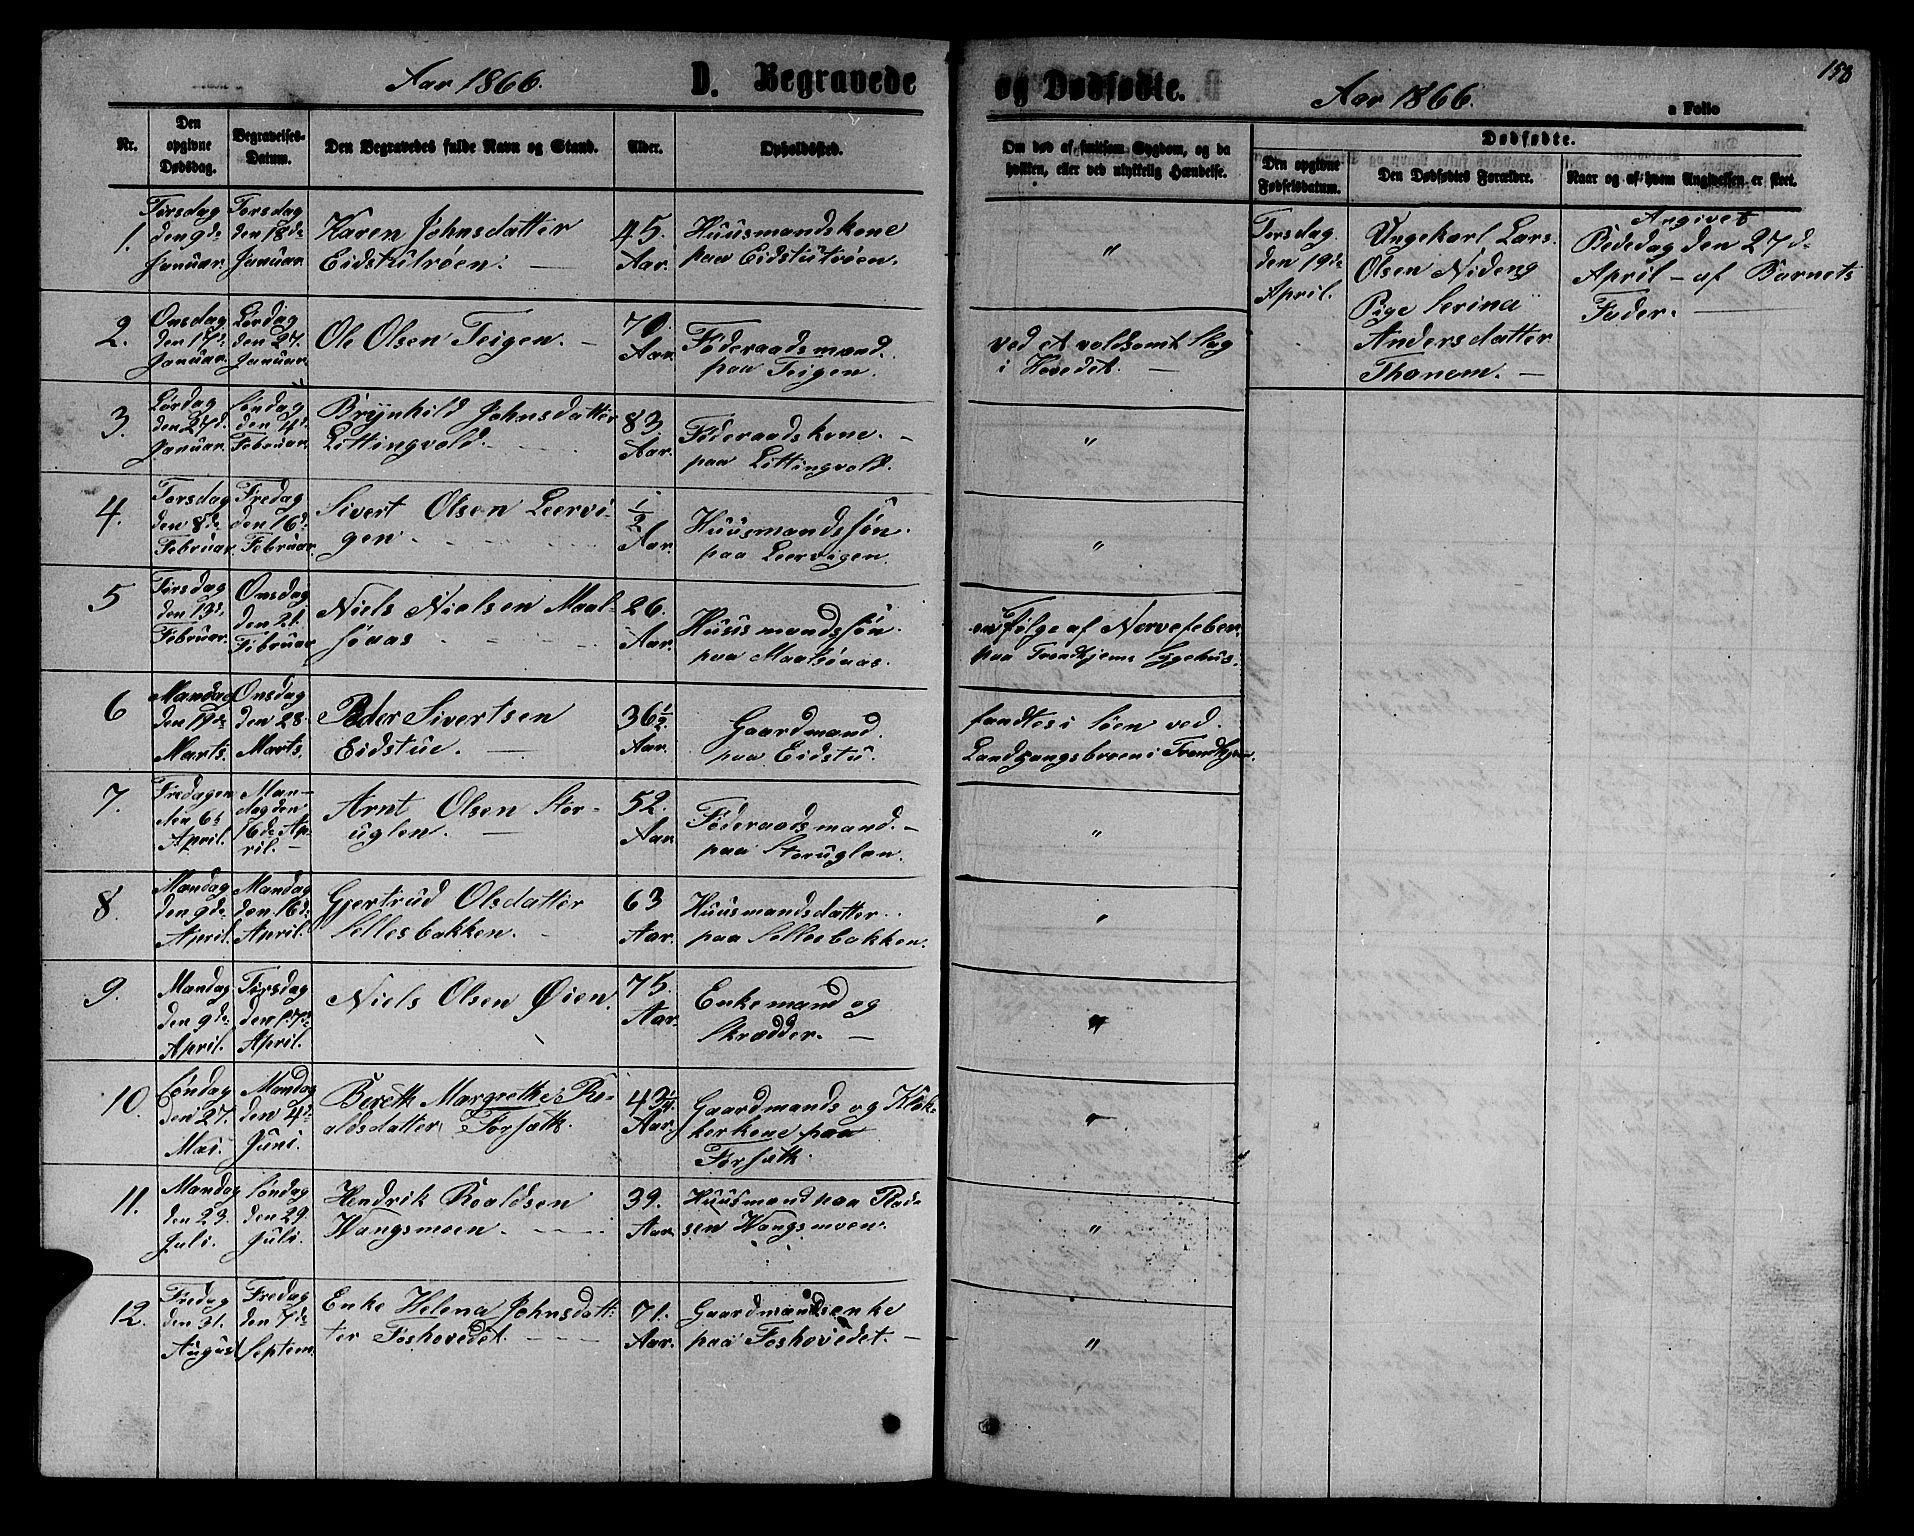 Aar 1866.
D. Begravede
og Dødfødte.
Aar 1866.
a Folio
158
Nr.
Den opgivne Dødsdag.
Begravelses-Datum.
Den Begravedes fulde Navn og Stand.
Alder.
Opholdssted.
Om død af smitsom Sygdom, og da
hvilken, eller ved ulykkelig Hændelse.
Dødfødte.
Den opgivne Fødselsdatum.
Den Dødfødtes Forældre.
Naar og af hvem Angivelsen er skeet.
1.
Torsdag den 18de Januar.
Karen Johnsdatter
Eidstutrøen.
45. Aar.
Huusmandskone
paa Eidstutrøen.
"
Torsdag
den 19de
April.
Ungekarl Lars
Olsen Nideng
Pige Serina
Andersdatter
Thanem.
Angivet
Bededag den 27d.
April - af Barnets
Fader.
2.
Onsdag den 17de Januar.
Lørdag den 27. Januar.
Ole Olsen Teigen.
70. Aar
Føderaadsmand.
paa Teigen.
ved et voldsomt Slag
i Hovedet.
3.
Lørdag den 27d. Januar.
Brynhild Johnsdatter
Littingvold.
83 Aar.
Føderaadskone.
paa Littingvold.
"
4.
Torsdag den 8de Februar.
Fredag den 16d. Februar.
Sivert Olsen Leervi-
gen.
1/2 Aar.
Huusmandssøn.
paa Leervigen.
"
5
Onsdag den 21. Februar
Niels Nielsen Maal-
søaas
26. Aar.
Huusmandssøn.
paa Maalsøaas.
følge af Nervefeber.
paa Trondhjems Sygehus.
6
Mandag den 19de Marts.
Onsdag den 28. Marts.
Peder Sivertsen
Eidstue.
36 1/2 Aar.
Gaardmand.
paa Eidstu.
fandtes i Søen ved
Landgangsbroen i Trondhjem.
7.
Fredagen den 6te April.
Mandag den 16de April.
Arnt Olsen Stor-
uglen.
52. Aar
Føderaadsmand.
paa Storuglen.
"
8.
Mandag den 9de April.
Mandag den 16de April.
Gjertrud Olsdatter
Sellesbakken.
63 Aar.
Huusmandsdatter.
paa Sellesbakken.
"
9.
Mandag den 9de April.
Niels Olsen Øien.
75. Aar.
Enkemand og
Skrædder.
"
10.
Søndag den 27. Mai.
Mandag den 4de Juni.
Bereth Margrethe Ro-
aldsdatter Forsæth.
43 3/4 Aar.
Gaardmands og Klok-
kerkone paa
Forsæth.
"
11.
Mandag den 23. Juli.
Søndag den 29. Juli.
Hendrik Roaldsen
Wangsmoen.
39. Aar
Huusmand paa Plad-
sen Wangsmoen.
"
12.
Fredag den 31. August
Fredag den 7de Septem.
Enke Helena Johnsdat-
ter Foshovedet.
71. Aar.
Gaardmandsenke
paa Foshovedet.
"